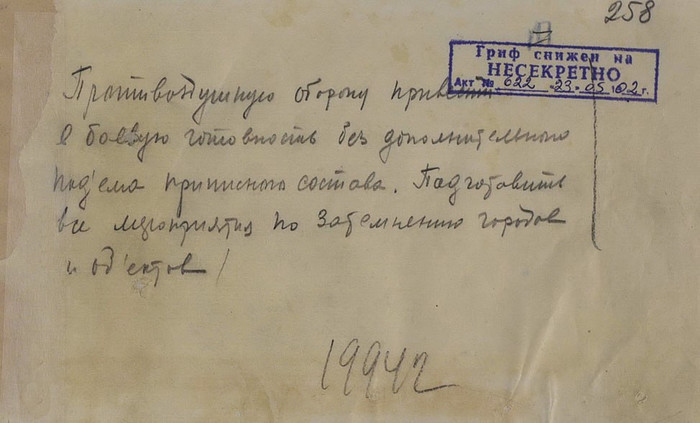 258
Гриф снижен на
НЕСЕКРЕТНО
Акт № 622 23.05.02г.
Противовоздушную оборону привести
в боевую готовность без дополнительного
под'ема приписного состава. Подготовить
все мероприятия по затемнению городов
и об'ектов